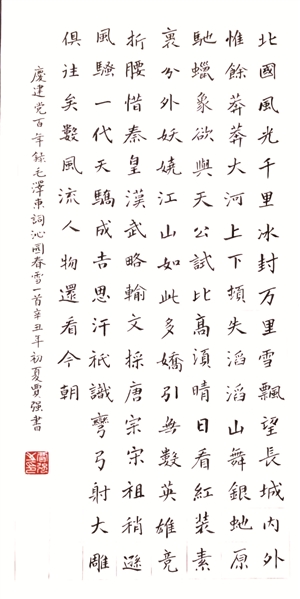 北國風光千里冰封万里雪飄望長城内外
惟餘莽莽大河上下頓失滔滔山舞銀虵原
馳蠟象欲與天公試比高須晴日看紅装素
裹分外妖嬈江山如此多嬌引無數英雄竞
折腰惜秦皇漢武略輸文採唐宗宋祖稍遜
風騷一代天驕成吉思汗衹識彎弓射大雕
俱往矣數風流人物還看今朝
慶建党百年錄毛澤東詞沁園春雪一首辛丑年初夏賈强書